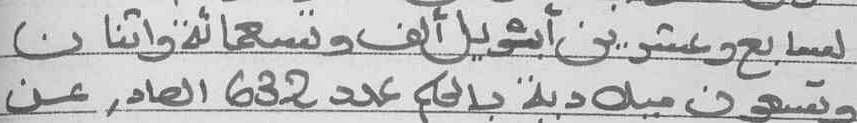 لسابع وعشرين أبريل ألف وتسعمائة واثنان
وتسعون ميلادية بالحكم عدد 632 الصادر عن